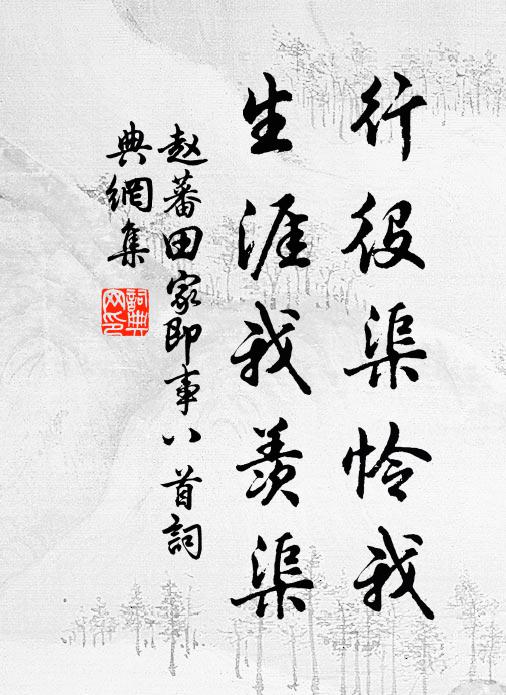 行役渠怜我
生涯我羡渠
赵蕃田家即事八首詞
典網集
詞典
网印